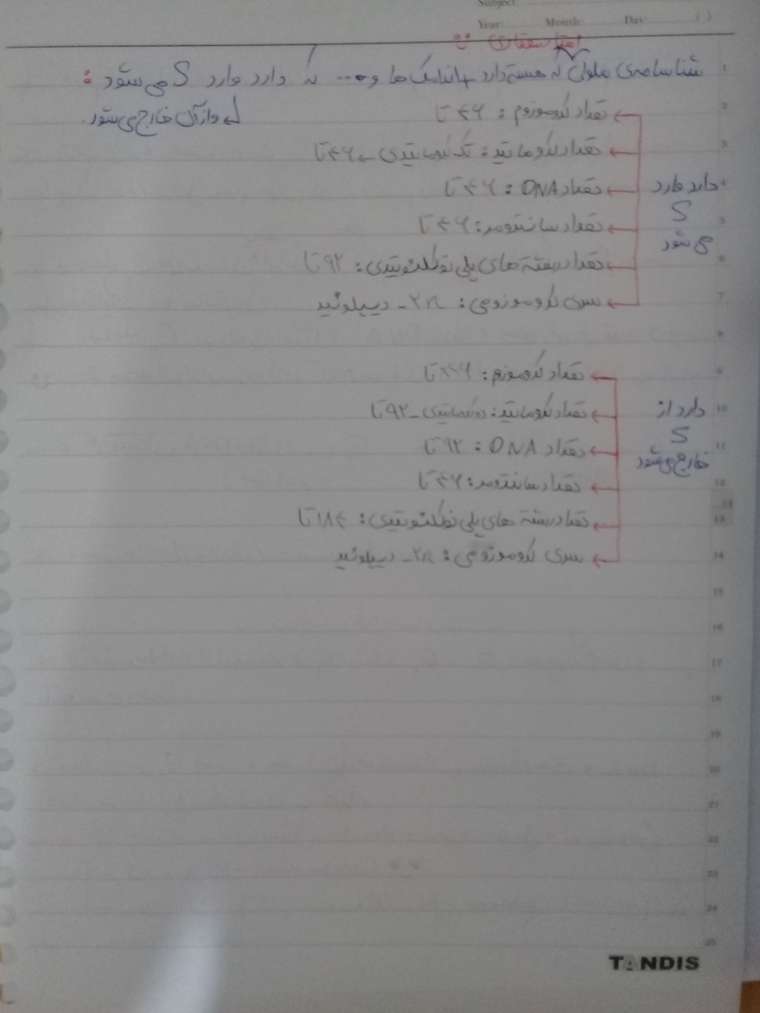 Subject:
Year: Month: Day: ( )
شناسنامه‌ی سلولی که هسته دارد و ... که دارد وارد S می‌شود :
و از آن خارج می‌شود.
دارد وارد S می‌شود
تعداد کروموزوم : ۴۶ تا
تعداد کروماتید : تک کروماتیدی - ۴۶ تا
تعداد DNA : ۴۶ تا
تعداد سانترومر : ۴۶ تا
تعداد رشته های پلی نوکلئوتیدی : ۹۲ تا
سری کروموزومی : ۲n - دیپلوئید
دارد از S خارج می‌شود
تعداد کروموزوم : ۴۶ تا
تعداد کروماتید : دو کروماتیدی - ۹۲ تا
تعداد DNA : ۹۲ تا
تعداد سانترومر : ۴۶ تا
تعداد رشته های پلی نوکلئوتیدی : ۱۸۴ تا
سری کروموزومی : ۲n - دیپلوئید
TANDIS